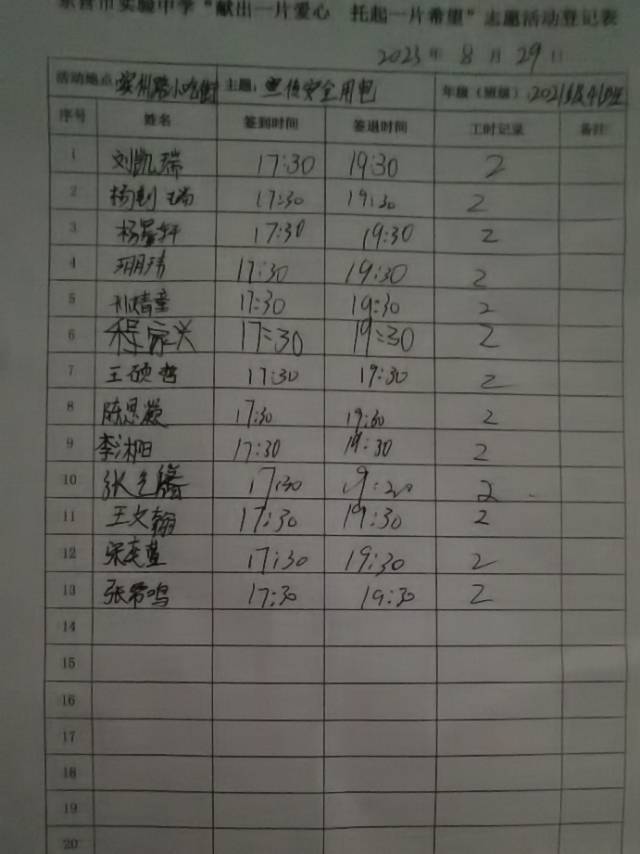 东营市实验中学“献出一片爱心 托起一片希望”志愿活动登记表
2023年 8月 29日
活动地点 小吃街 主题: 宣传安全用电 年级(班级): 2021级
序号 姓名 签到时间 签退时间 工时记录 备注
1 刘凯瑞 17:30 19:30 2
2 杨 瑞 17:30 19:30 2
3 杨 轩 17:30 19:30 2
4 17:30 19:30 2
5 孙婧童 17:30 19:30 2
6 程家兴 17:30 19:30 2
7 王硕哲 17:30 19:30 2
8 陈思凝 17:30 19:30 2
9 李湘阳 17:30 19:30 2
10 张 17:30 2
11 王文翰 17:30 19:30 2
12 宋奕萱 17:30 19:30 2
13 张希鸣 17:30 19:30 2
14
15
16
17
18
19
20